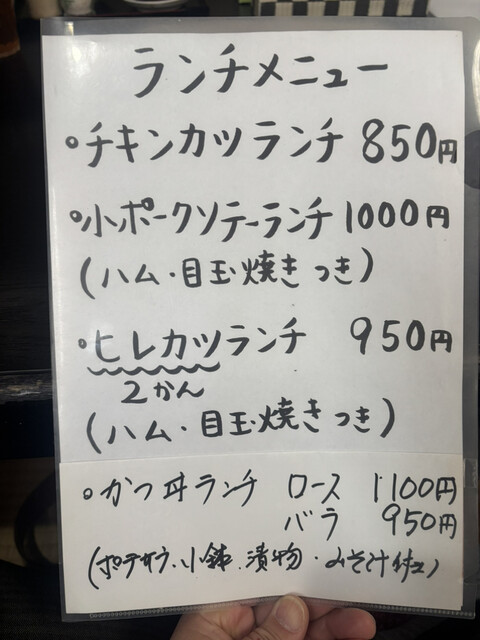 ランチメニュー
•チキンカツランチ 850円
•小ポークソテーランチ 1000円
(ハム・目玉焼きつき)
•ヒレカツランチ 950円
2かん
(ハム・目玉焼きつき)
•かつ丼ランチ ロース 1100円
バラ 950円
(ポテサラ、小鉢、漬物・みそ汁付)